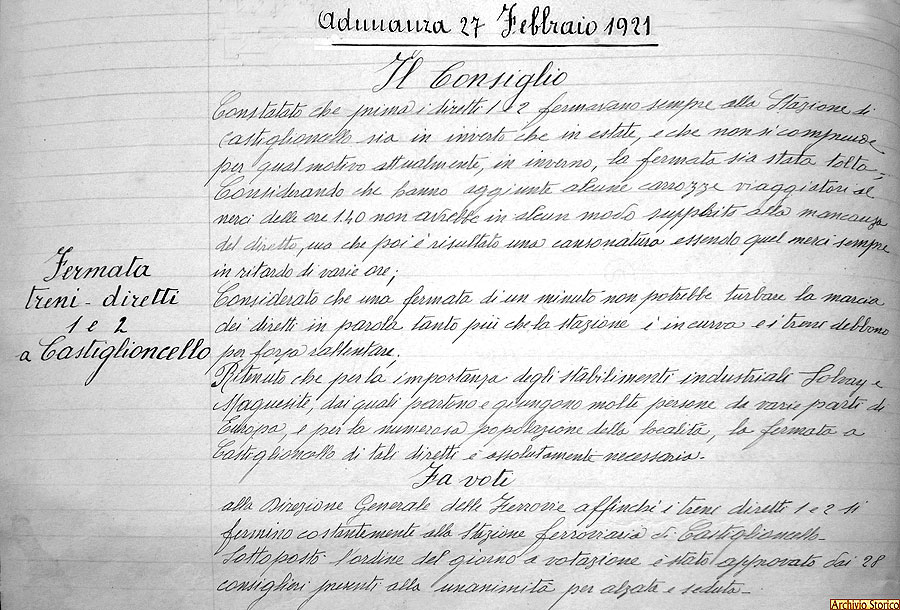 Adunanza 27 Febbraio 1921
Il Consiglio
Constatato che prima i diretti 1 e 2 fermavano sempre alla Stazione di
Castiglioncello sia in inverto che in estate, e che non si comprende
per qual motivo attualmente, in inverno, la fermata sia stata tolta;
Considerando che hanno aggiunte alcune carrozze viaggiatori al
merci delle ore 1.40 non avrebbe in alcun modo supplito alla mancanza
del diretto, ma che poi è risultato una canzonatura essendo quel merci sempre
in ritardo di varie ore;
Fermata
treni - diretti
1 e 2
a Castiglioncello
Considerato che una fermata di un minuto non potrebbe turbare la marcia
dei diretti in parola tanto più che la stazione è in curva e i treni debbono
per forza rallentare;
Ritenuto che per la importanza degli stabilimenti industriali Solvay e
Magnesite, dai quali partono e giungono molte persone da varie parti di
Europa, e per la numerosa popolazione della località, la fermata a
Castiglioncello di tali diretti è assolutamente necessaria.
Fa voti
alla Direzione Generale delle Ferrovie affinchè i treni diretti 1 e 2 si
fermino costantemente alla Stazione ferroviaria di Castiglioncello.
Sottoposti l'ordine del giorno a votazione è stato approvato dai 28
consiglieri presenti alla unanimità per alzata e seduta.
Archivio Storico